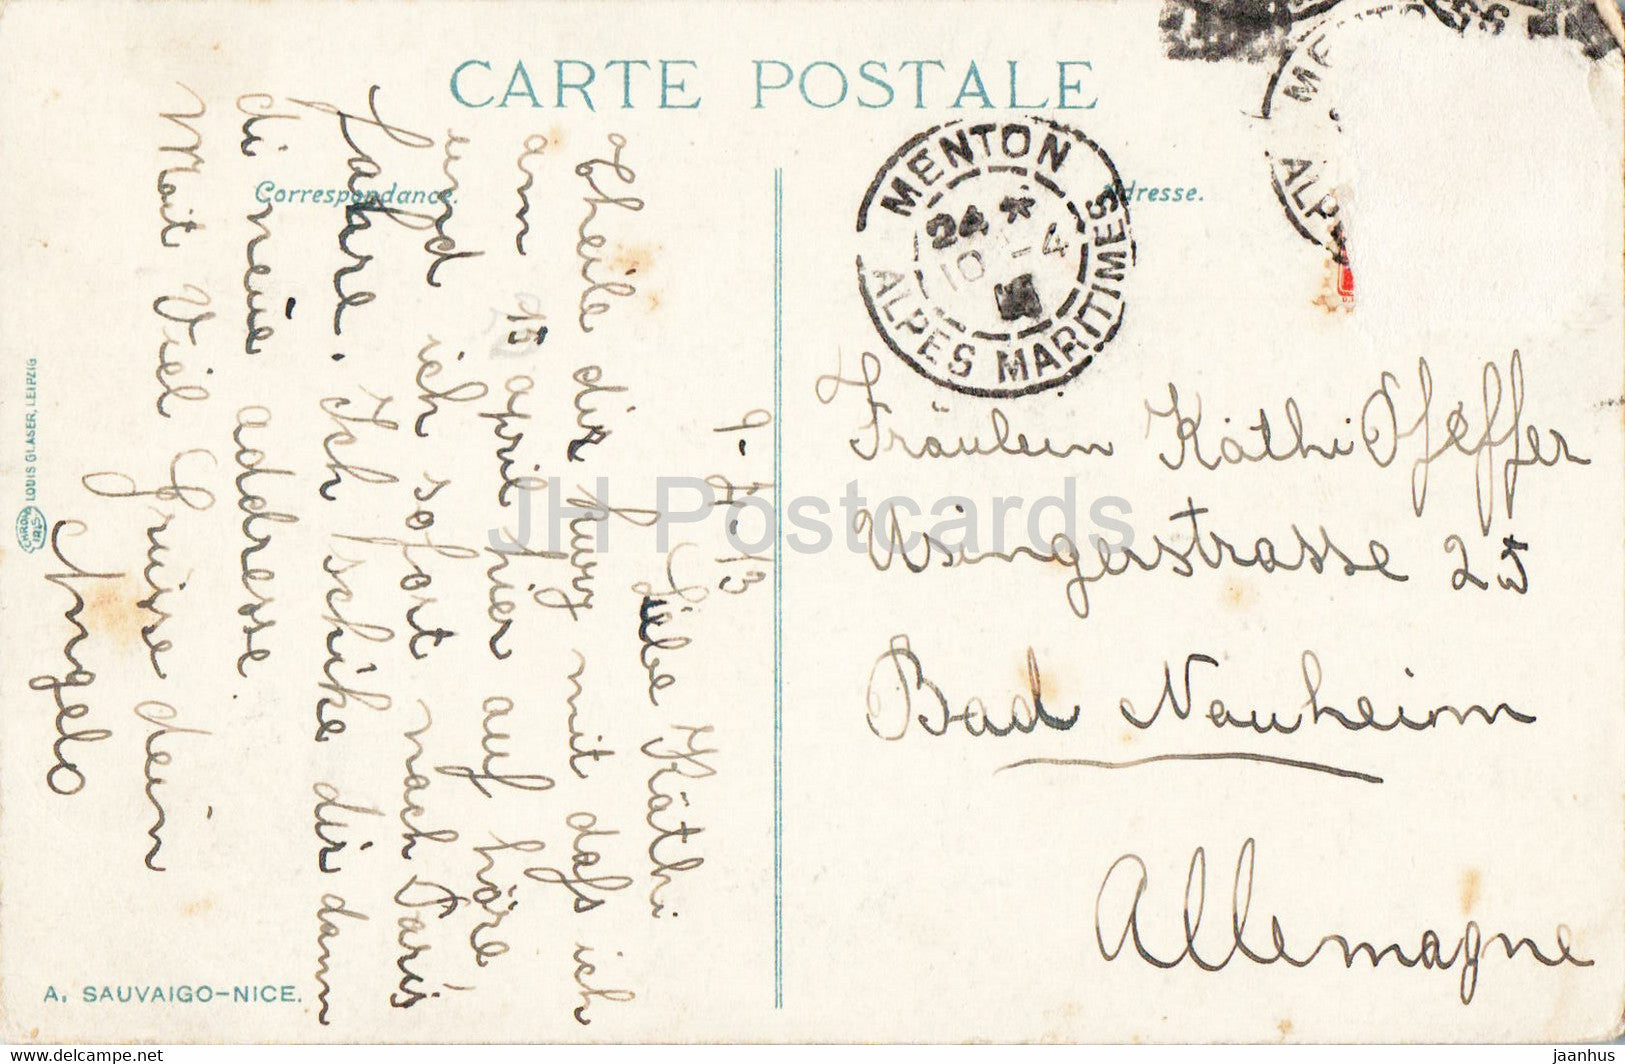 CARTE POSTALE
Correspondance.
Adresse.
MENTON
24 *
10 -4
ALPES MARITIMES
MENTO
ALPE
9-4-13
Liebe Käthi
theile dir kurz mit dass ich
am 15 april hier auf höre
und ich sofort nach Paris
fahre. Ich schike dir dann
di neue addresse.
Mit Viel Grüsse dein
Angelo
Fräulein Käthi Pfeffer
Usingerstrasse 25
Bad Nauheim
Allemagne
LOUIS GLASER, LEIPZIG
A. SAUVAIGO-NICE.
JH Postcards
www.delcampe.net
jaanhus